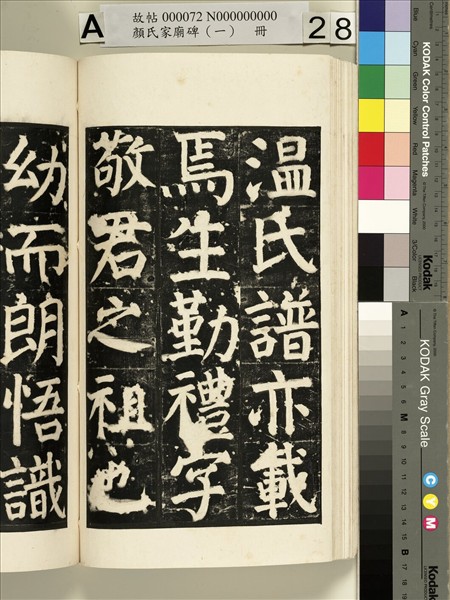 故帖 000072 N000000000
顏氏家廟碑（一） 冊
A
28
温氏譜亦載
焉生勤禮字
敬君之祖也
幼而朗悟識
KODAK Color Control Patches
Blue
Cyan
Green
Yellow
Red
Magenta
White
3/Color
Black
Kodak
KODAK Gray Scale
A 1 2 3 4 5 6 M 8 9 10 11 12 13 14 15 B 17 18 19
C Y M
Kodak